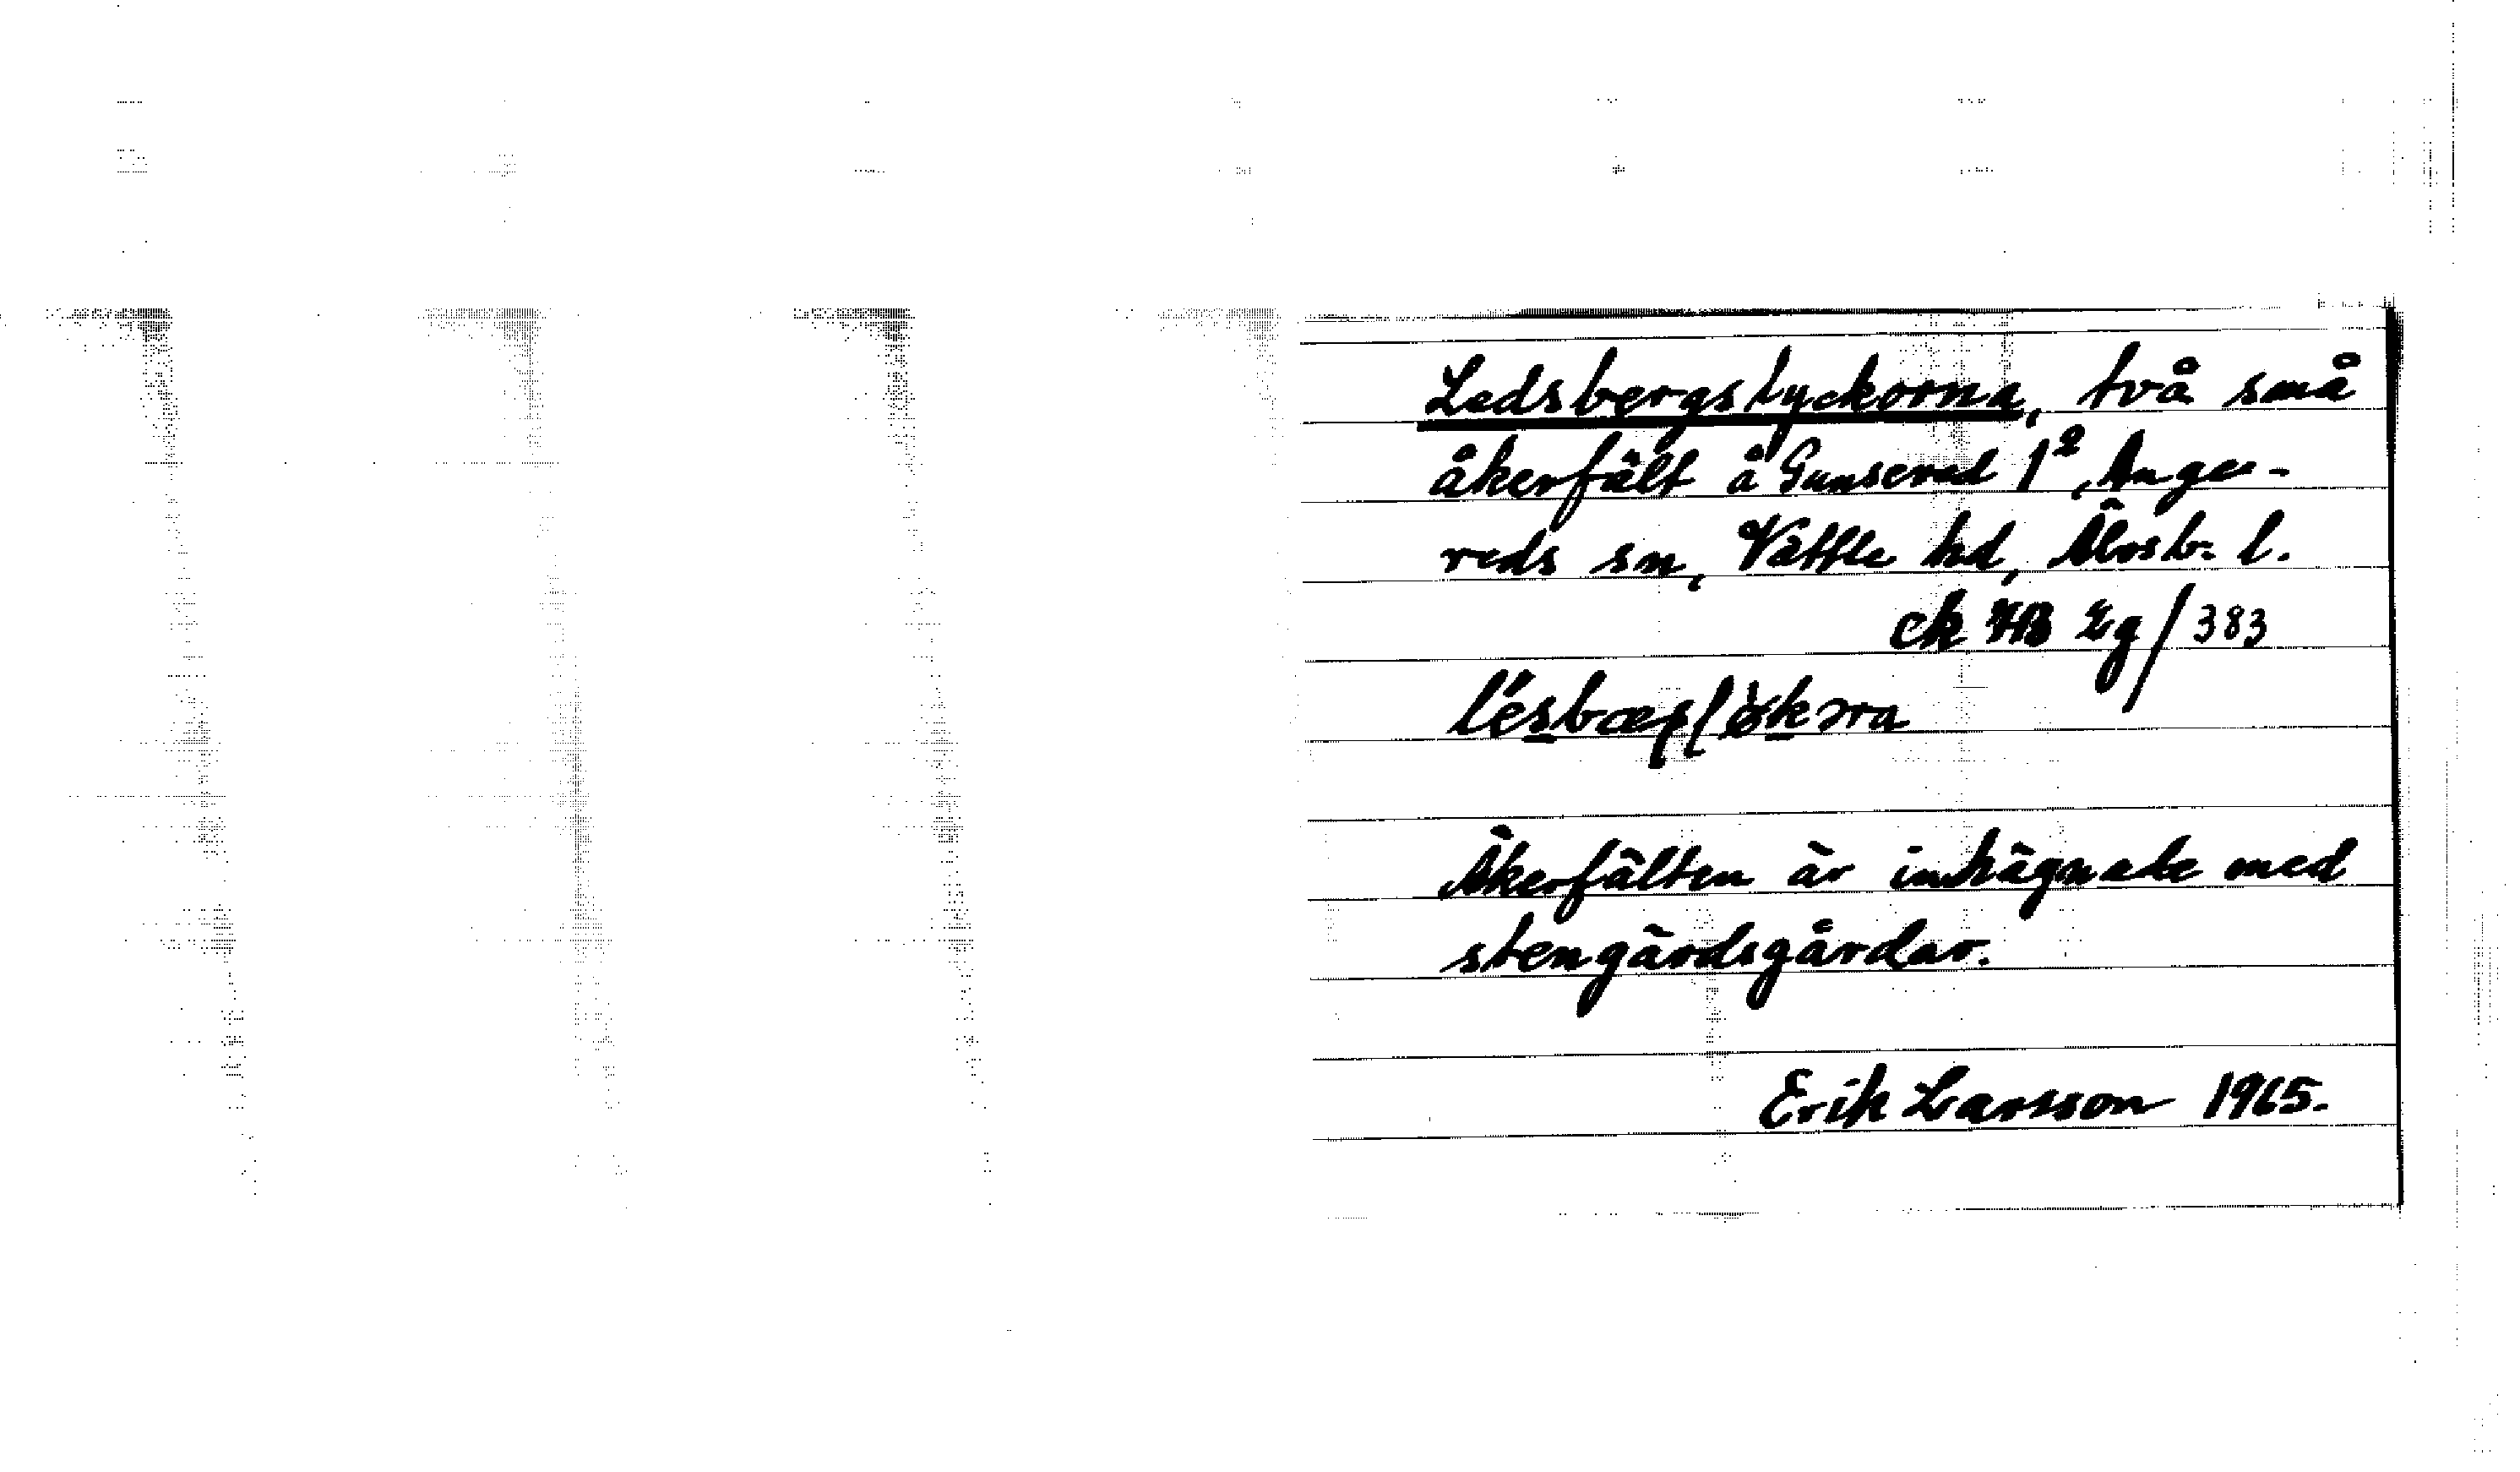 Ledsbergslyckorna, två små
åkerfält å Gunsered 1², Ange-
reds sn, Vättle hd, Älvsb. l.
ek 7B Eg/383
Åkerfälten är inhägnade med
stengärdsgårdar.
Erik Larsson 1965.